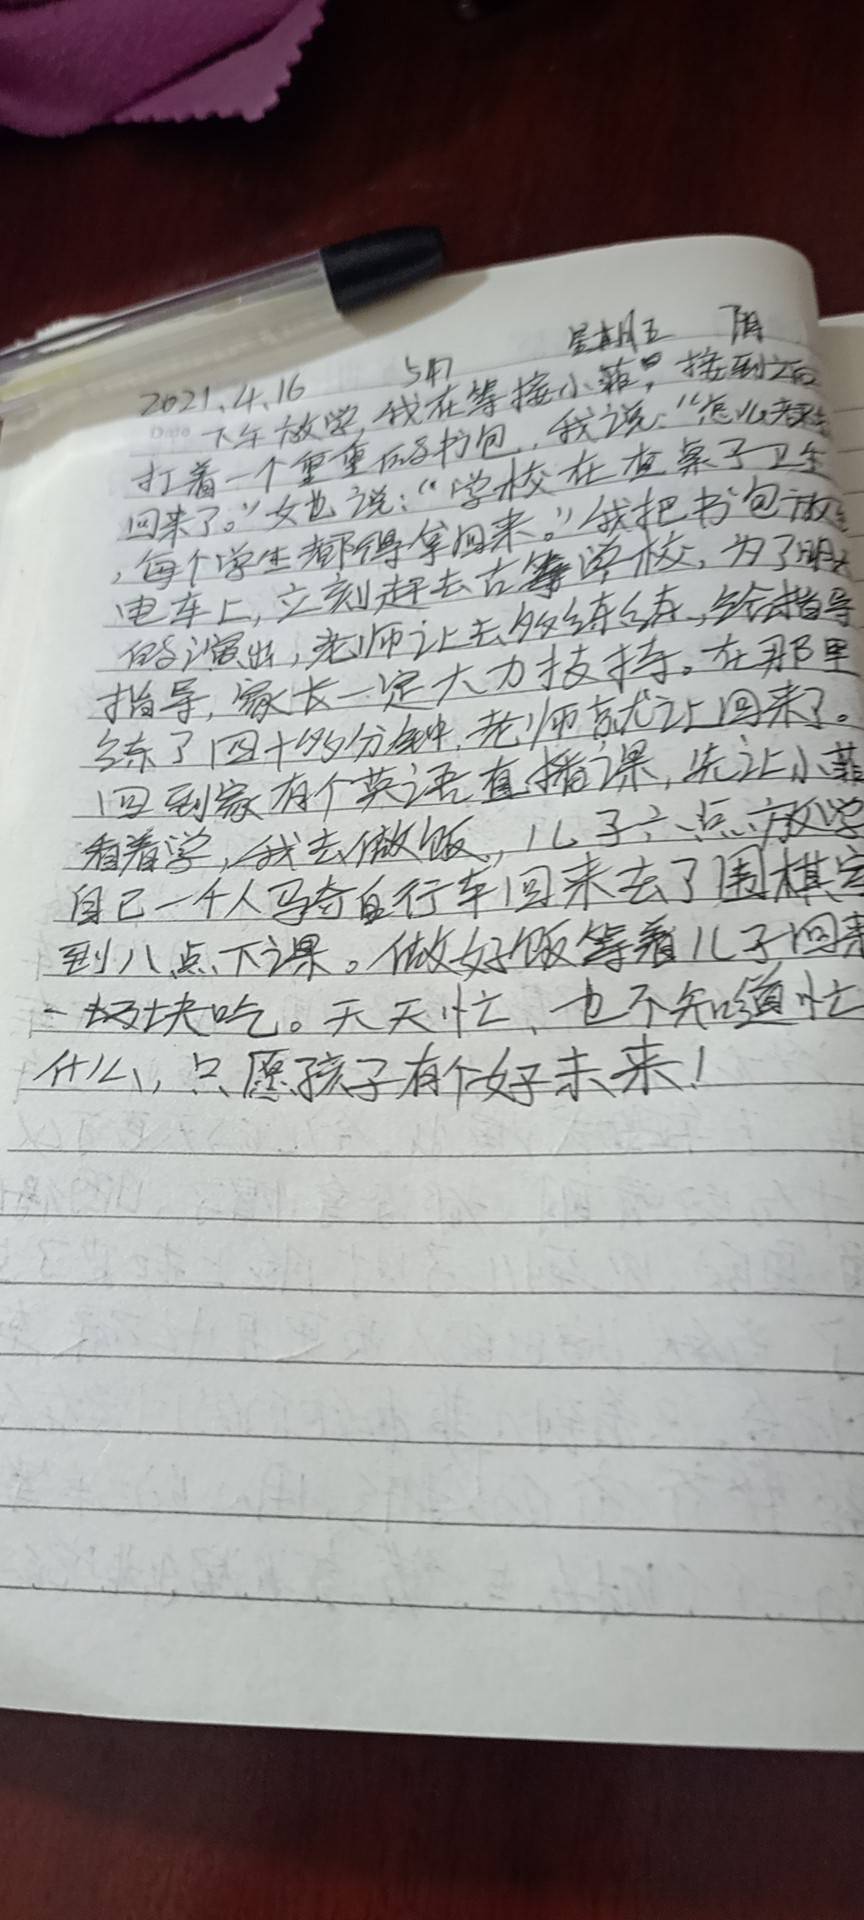 2021.4.16 星期五 阴
下午放学,我在等接小菲,接到之后
扛着一个重重的书包,我说:“怎么都拿
回来了。”她说:“学校在查桌子卫生
,每个学生都得拿回来。”我把书包放
电车上,立刻赶去古筝学校,为了明天
的演出,老师让去多练练,给指导
指导,家长一定大力支持。在那里
练了四十多分钟,老师就让回来了。
回到家有个英语直播课,先让小菲
看着学,我去做饭,儿子六点放学
自己一个人骑自行车回来去了围棋室
到八点下课。做好饭等着儿子回来
一块吃。天天忙、也不知道忙
什么,只愿孩子有个好未来!